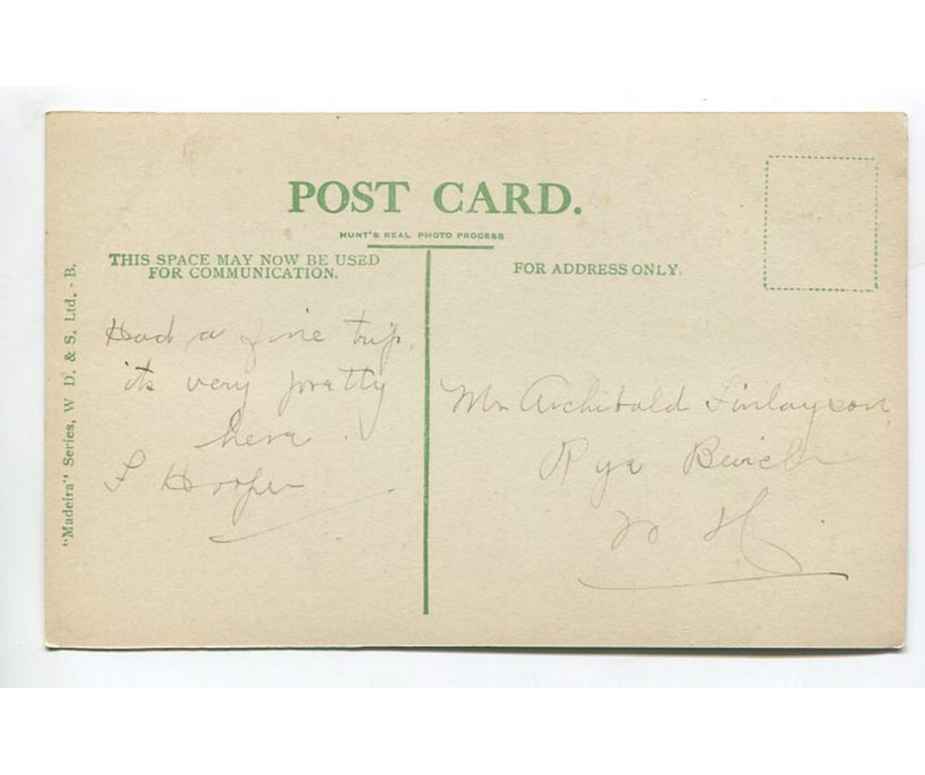 POST CARD.
HUNT'S REAL PHOTO PROCESS
THIS SPACE MAY NOW BE USED
FOR COMMUNICATION.
FOR ADDRESS ONLY.
"Madeira" Series, W D. & S. Ltd. - B.
Had a fine trip,
its very pretty
here.
F Hooper
Mr Archibald Finlayson
Rye Beach
N H.